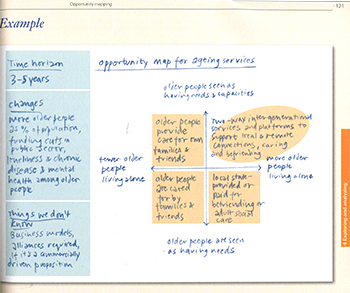 Opportunity mapping
121
Example
Time horizon
3-5 years
opportunity map for ageing services
older people seen as
having needs & capacities
Changes
more older people
as % of population,
funding cuts in
public sector,
loneliness & chronic
disease & mental
health among older
people
older people
provide
care for own
families &
friends
Two-way inter-generational
services and platforms to
support local & remote
connections, caring
and befriending
fewer older
people
living alone
more older
people
living alone
older people
are cared
for by
families &
friends
local state-
provided or
paid for
befriending or
adult social
care
Things we don't
know
Business models,
alliances required,
if it's a commercially
driven proposition
older people are seen
as having needs
4 Exploring and analysing